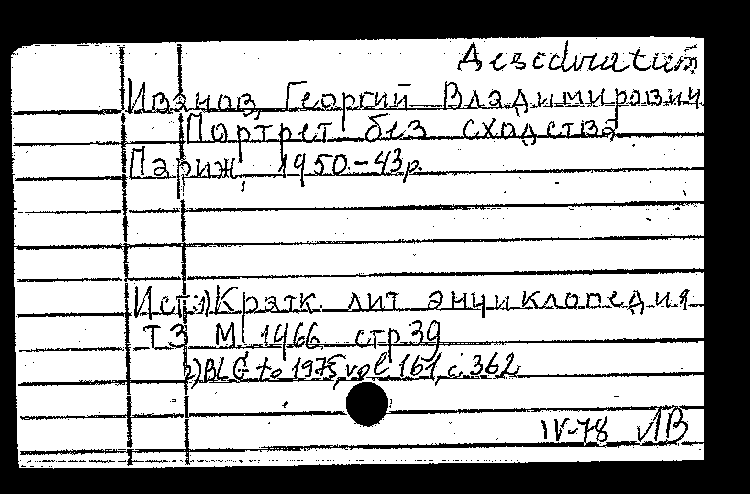 Desideratum
Иванов, Георгий Владимирович
Портрет без сходства
Париж, 1950.-43р.
Ист:1) Кратк. лит энциклопедия
Т3 М. 1966 стр 39
2) BLC to 1975, vol 161, с. 362
IV-78 ЛВ